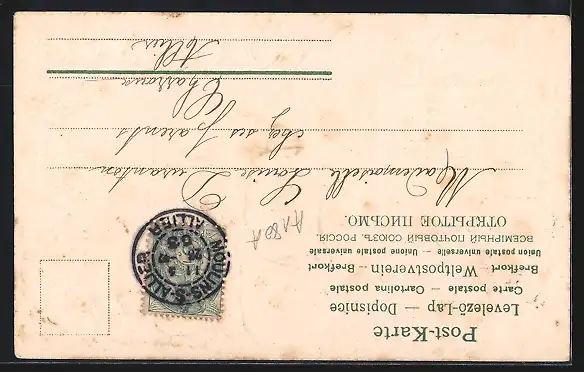 Post-Karte
Levelező-Lap — Dopisnice
Carte postale — Cartolina postale
Brefkort — Weltpostverein — Brefkort
Union postale universelle — Unione postale universale
ВСЕМІРНЫЙ ПОЧТОВЫЙ СОЮЗЪ. РОССІЯ.
ОТКРЫТОЕ ПИСЬМО.
ALLIER
A 180A
Mademoiselle Louise Duranton
chez ses parents
Charroux
Allier